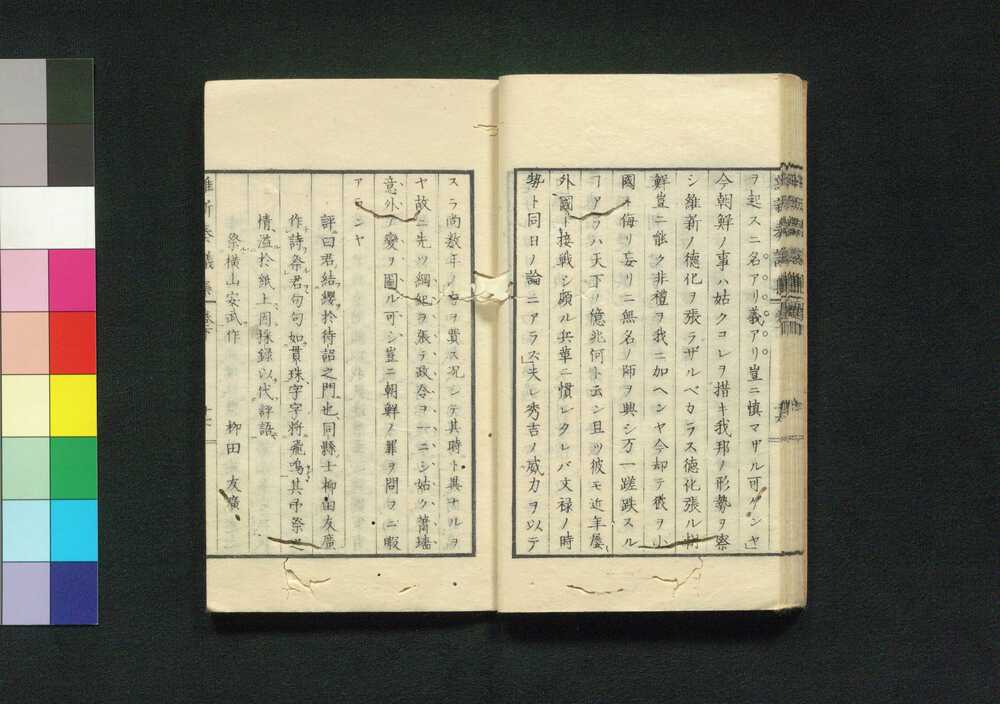 ヲ起スニ名アリ義アリ豈ニ慎マザル可ケンヤ」
今朝鮮ノ事ハ姑クコレヲ措キ我邦ノ形勢ヲ察
シ維新ノ德化ヲ張ラザルベカラス德化張ル朝
鮮豈ニ能ク非禮ヲ我ニ加ヘンヤ今却テ彼ヲ小
國ト侮リ妄リニ無名ノ師ヲ興シ万一蹉跌スル
ヿアラハ天下ノ億兆何ト云ン且ツ彼モ近年屡
外國ト接戰シ頗ル兵革ニ慣レタレバ文禄ノ時
勢ト同日ノ論ニアラス」夫レ秀吉ノ威力ヲ以テ
スラ尚数年ノ力ヲ費ス況シテ其時ト異ナルヲ
ヤ故ニ先ツ綱紀ヲ張テ政令ヲ一ニシ姑ク蕭墻
意外ノ變ヲ圖ル可シ豈ニ朝鮮ノ罪ヲ問フニ暇
アランヤ
評曰君結纓於待詔之門也同縣士柳田友廣
作詩祭君句句如貫珠字字將飛鳴其弔祭之
情溢於紙上因採錄以代評語
祭横山安武作 柳田友廣